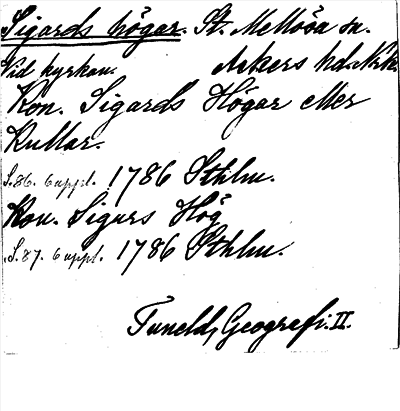 Sigards högar. St. Mellösa sn.
Vid kyrkan. Askers hd. Nrk.
Kon. Sigards Högar eller
Kullar.
S. 86. 6 uppl. 1786 Sthlm.
Kon. Sigurs Hög
S. 87. 6 uppl. 1786 Sthlm.
Tuneld, Geografi. II.